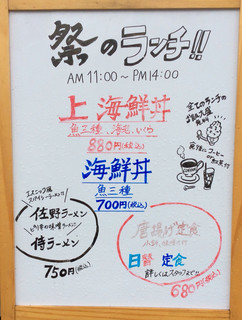 祭のランチ!!
AM 11:00~PM14:00
上海鮮丼
魚三種、海老、いくら
880円(税込)
海鮮丼
魚三種
700円(税込)
全てのランチの
ご飯大盛
無料
食後にコーヒー
エスニック風
スパイシーラーメン!!
佐野ラーメン
侍ラーメン
750円(税込)
唐揚げ定食
日替定食
詳しくはスタッフまで!!
680円(税込)